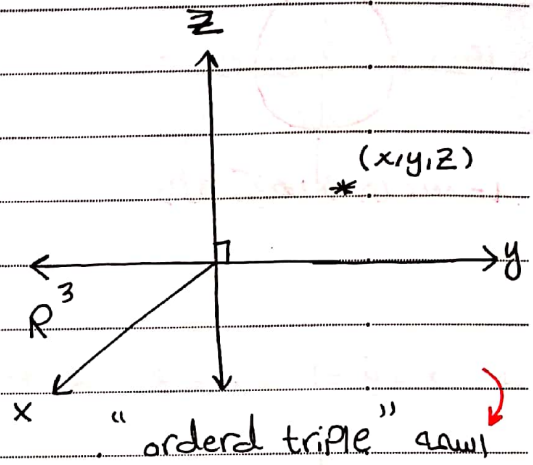 Z
(x,y,z)
y
R³
x
“orderd triple” اسمه